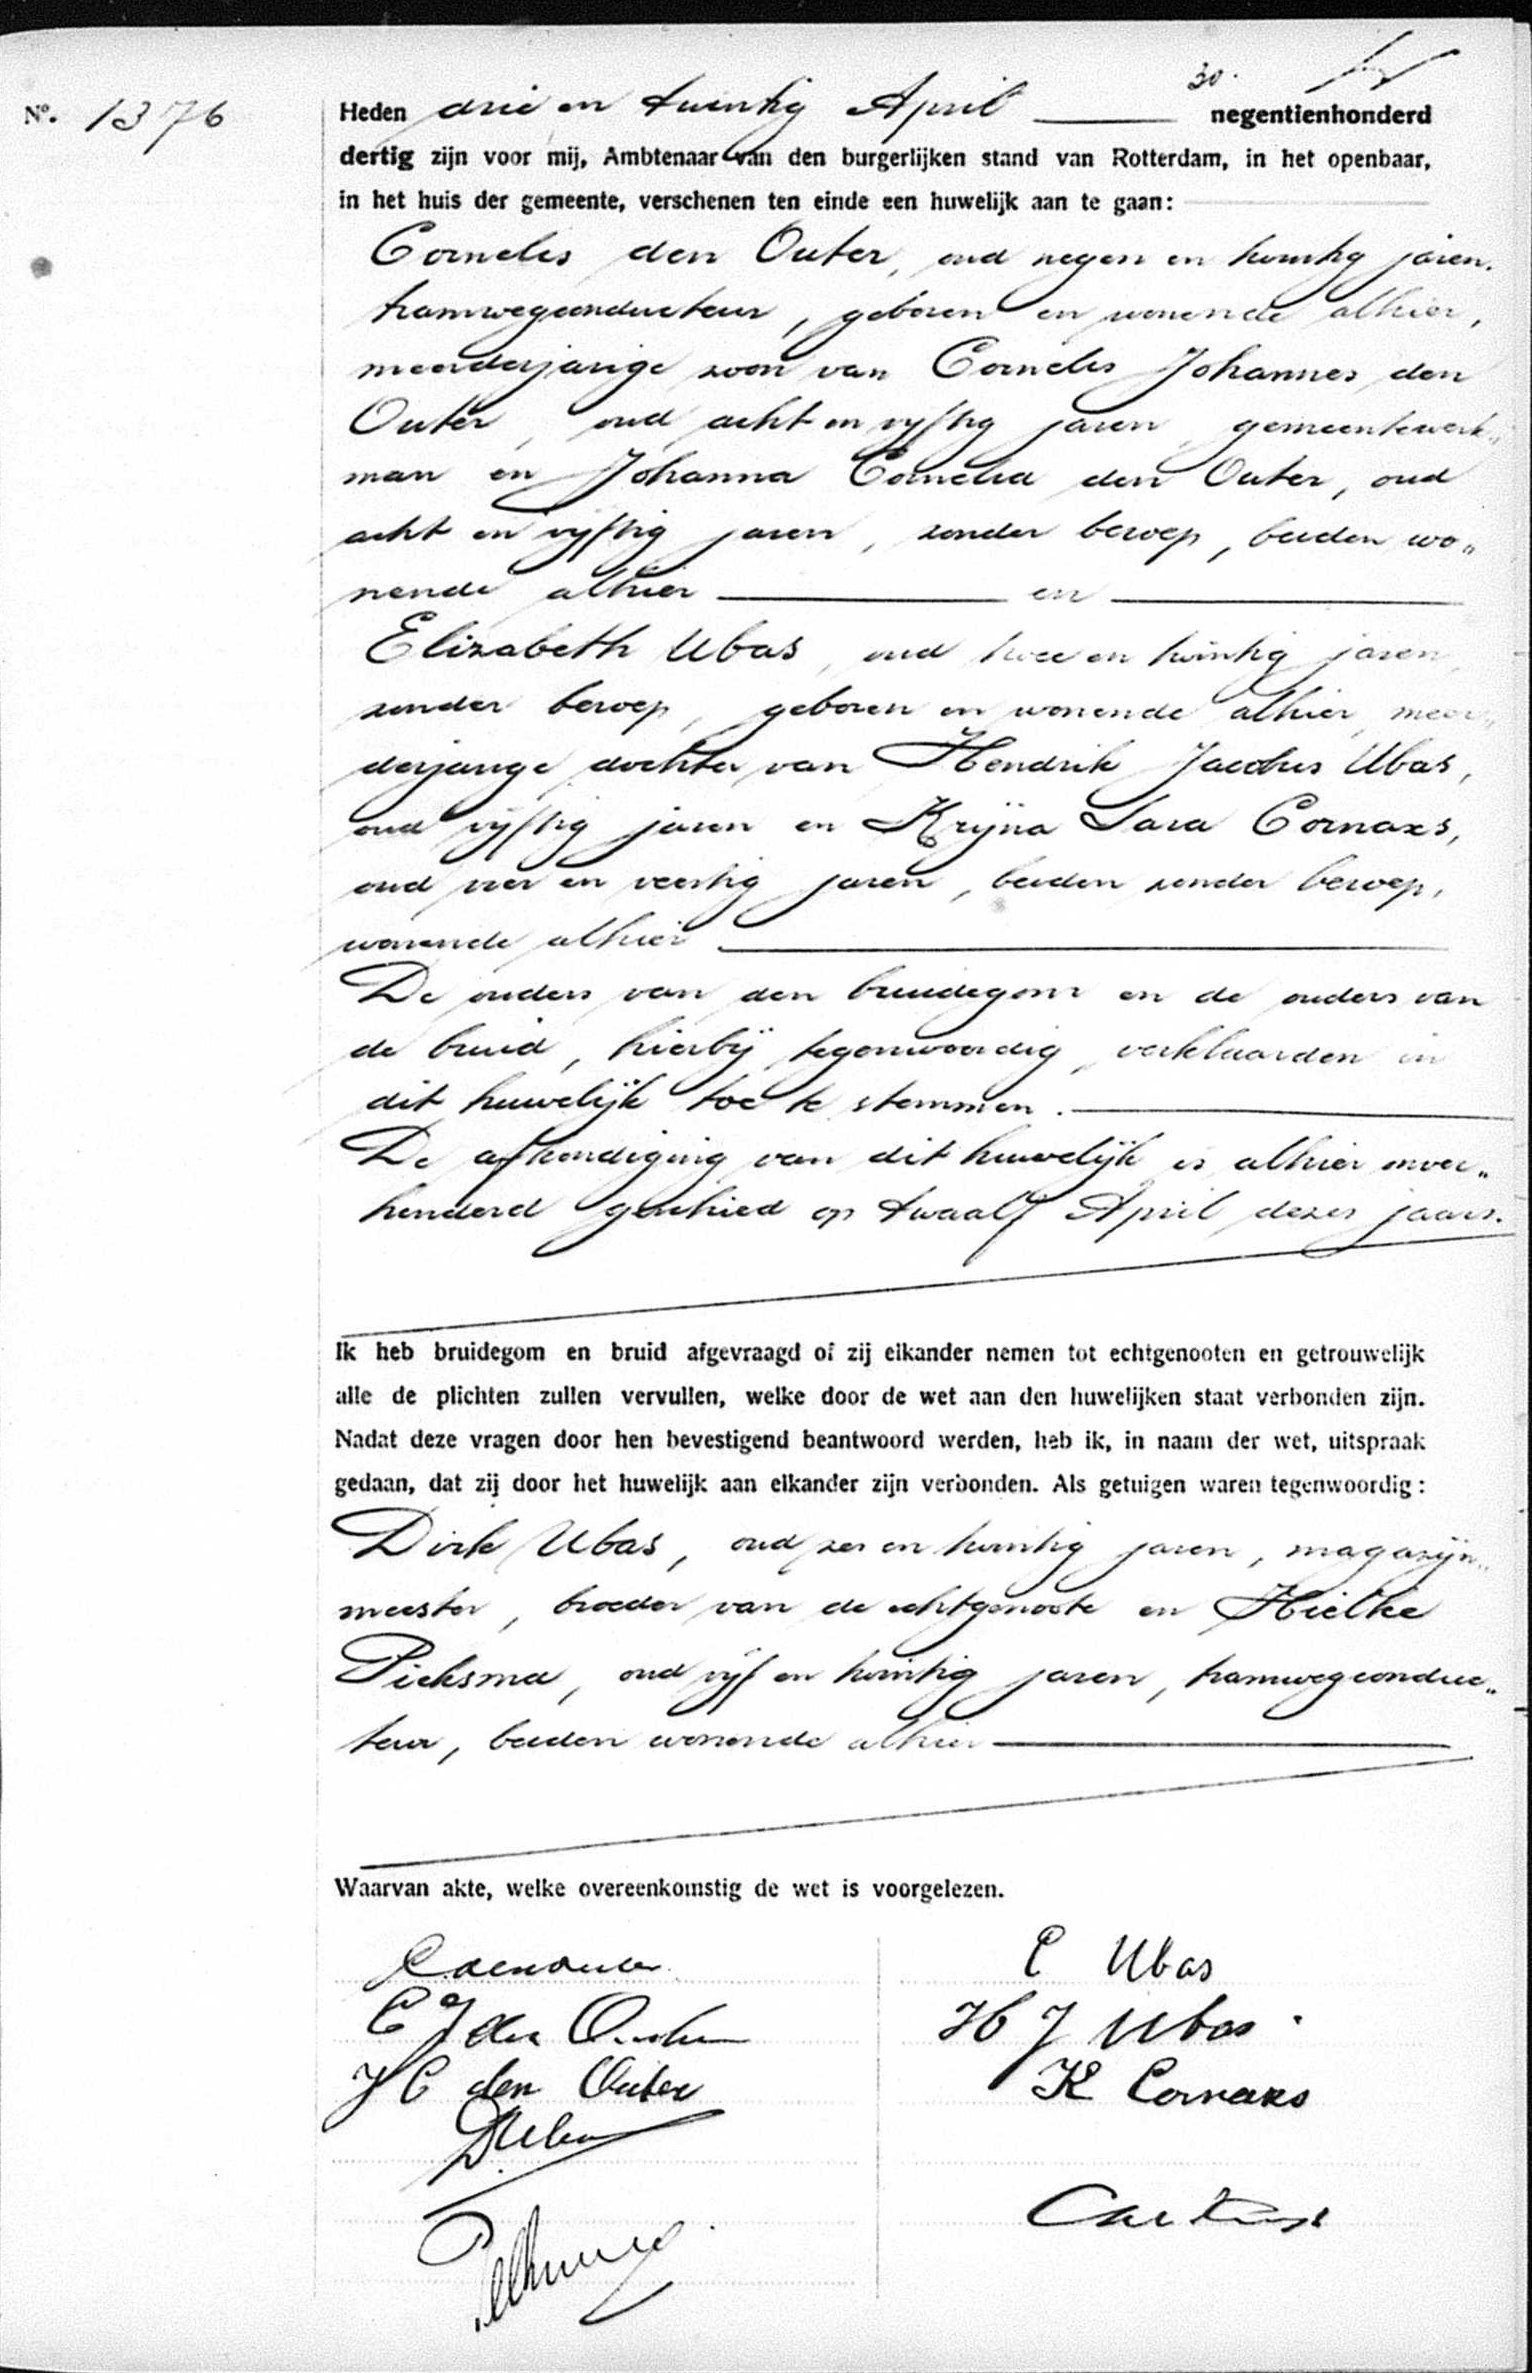 30.
No. 1376
Heden drie en twintig April negentienhonderd
dertig zijn voor mij, Ambtenaar van den burgerlijken stand van Rotterdam, in het openbaar,
in het huis der gemeente, verschenen ten einde een huwelijk aan te gaan:
Cornelis den Outer, oud negen en twintig jaren,
tramwegconducteur, geboren en wonende alhier,
meerderjarige zoon van Cornelis Johannes den
Outer, oud acht en vijftig jaren, gemeentewerk„
man en Johanna Cornelia den Outer, oud
acht en vijftig jaren, zonder beroep, beiden wo„
nende alhier en
Elizabeth Ubas, oud twee en twintig jaren,
zonder beroep, geboren en wonende alhier, meer„
derjarige dochter van Hendrik Jacobus Ubas,
oud vijftig jaren en Krijna Sara Cornaxs,
oud vier en veertig jaren, beiden zonder beroep,
wonende alhier
De ouders van den bruidegom en de ouders van
de bruid, hierbij tegenwoordig, verklaarden in
dit huwelijk toe te stemmen.
De afkondiging van dit huwelijk is alhier onver„
hinderd geschied op twaalf April dezes jaars.
Ik heb bruidegom en bruid afgevraagd of zij elkander nemen tot echtgenooten en getrouwelijk
alle de plichten zullen vervullen, welke door de wet aan den huwelijken staat verbonden zijn.
Nadat deze vragen door hen bevestigend beantwoord werden, heb ik, in naam der wet, uitspraak
gedaan, dat zij door het huwelijk aan elkander zijn verbonden. Als getuigen waren tegenwoordig:
Dirk Ubas, oud zes en twintig jaren, magazijn„
meester, broeder van de echtgenoote en Hielke
Pieksma, oud vijf en twintig jaren, tramwegconduc„
teur, beiden wonende alhier
Waarvan akte, welke overeenkomstig de wet is voorgelezen.
C. den Outer
E Ubas
C J den Outer
H J Ubas
J C den Outer
K Cornaxs
D Ubas